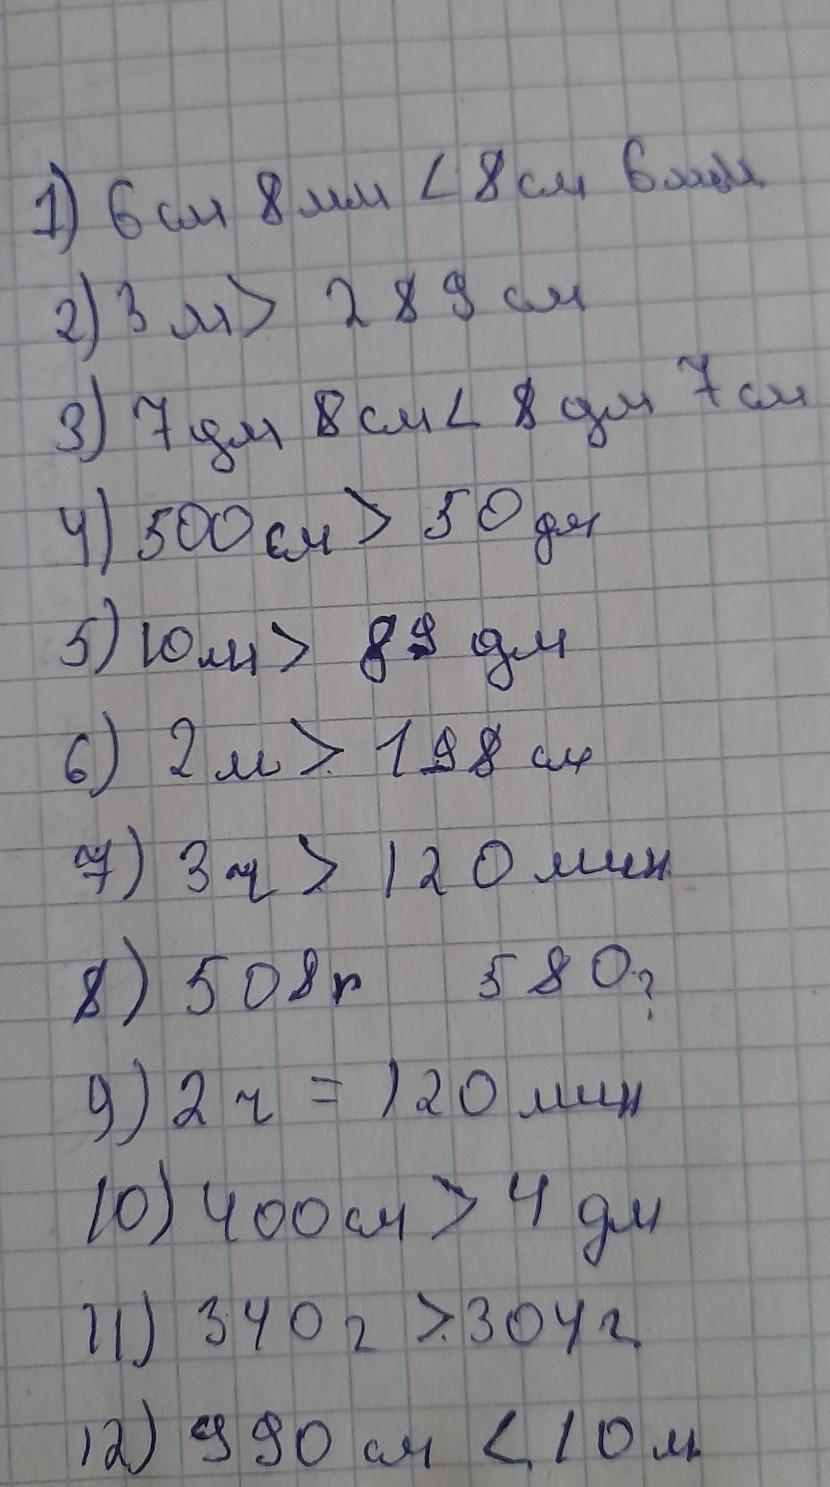 1) 6 см 8 мм < 8 см 6 мм
2) 3 м > 289 см
3) 7 дм 8 см < 8 дм 7 см
4) 500 см > 50 дм
5) 10 м > 89 дм
6) 2 м > 198 см
7) 3 ч > 120 мин
8) 508 г 580 ?
9) 2 ч = 120 мин
10) 400 см > 4 дм
11) 340 г > 304 г
12) 990 см < 10 м